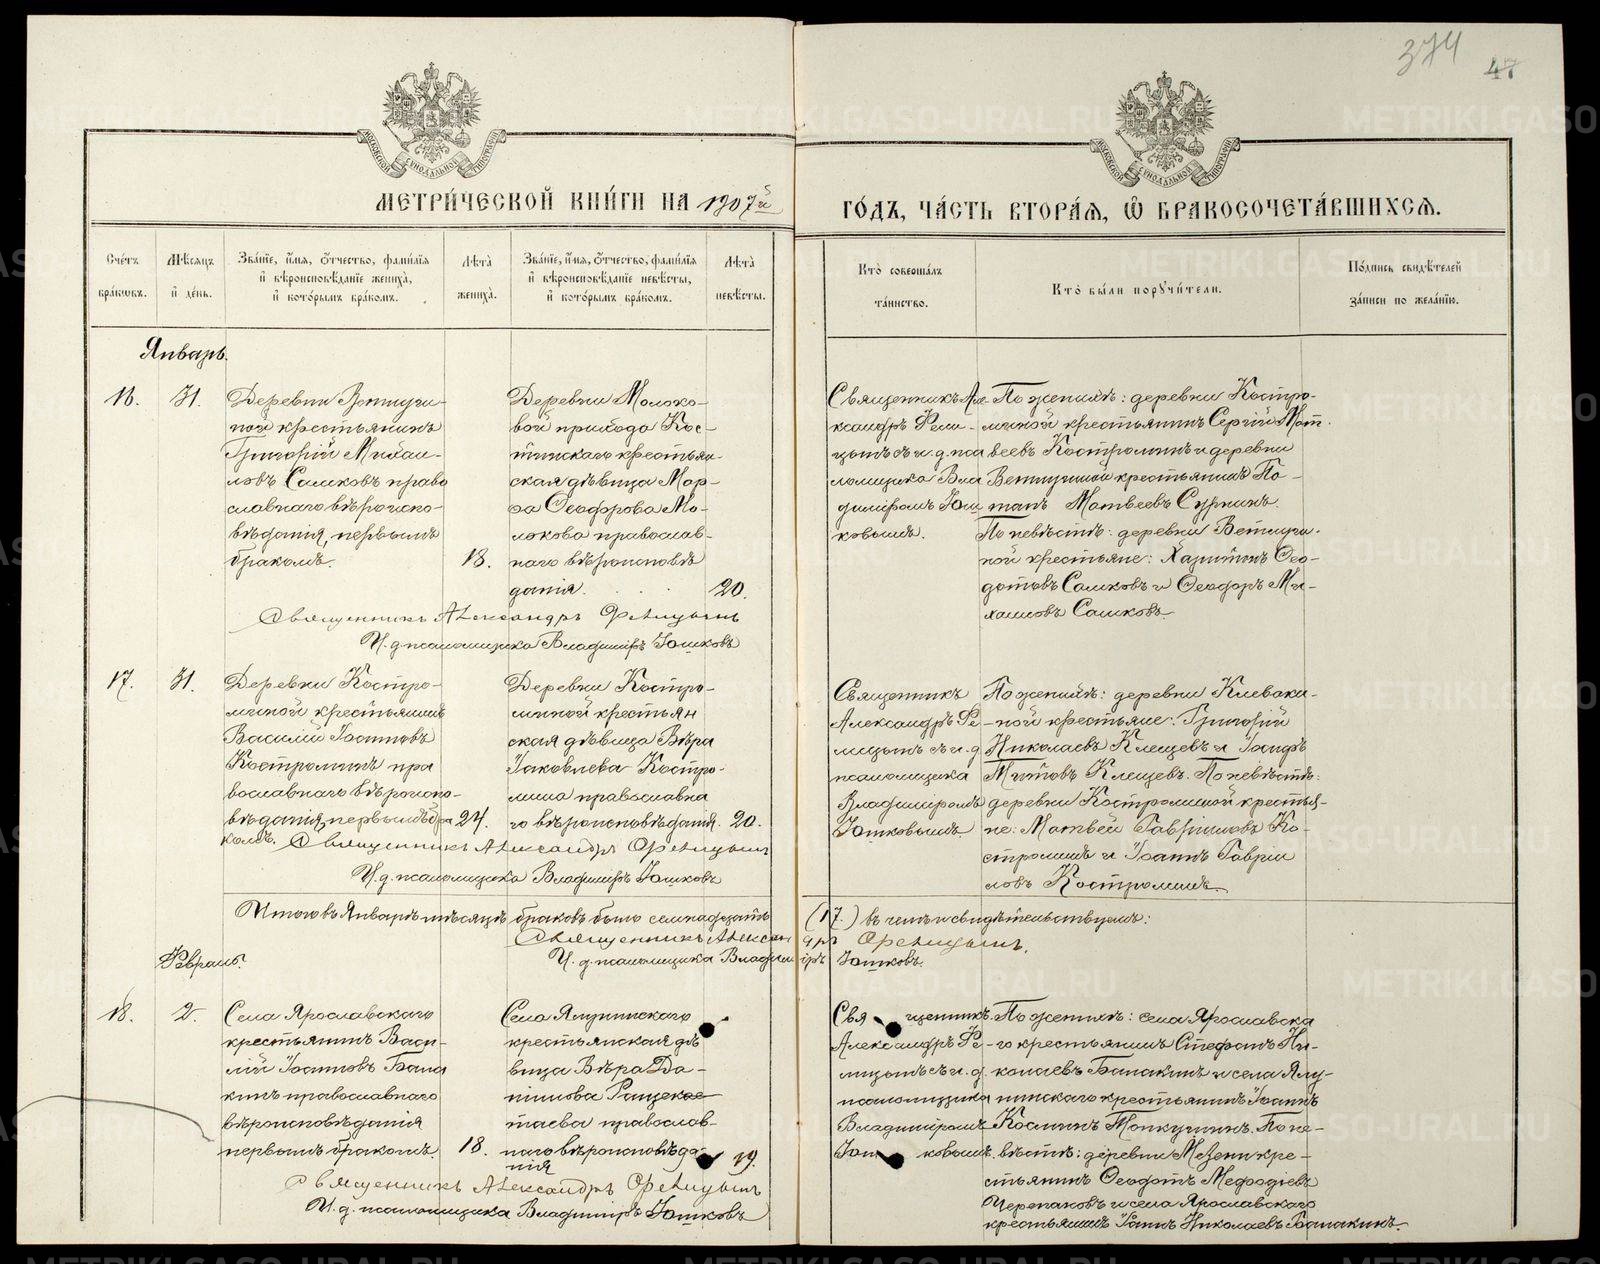 374
47
МОСКОВСКОЙ СИНОДАЛЬНОЙ ТИПОГРАФІИ
МОСКОВСКОЙ СИНОДАЛЬНОЙ ТИПОГРАФІИ
МЕТРИ́ЧЕСКОЙ КНИ́ГИ НА 1907й
ГО́ДЪ, ЧА́СТЬ ВТОРА́Я, Ѽ БРАКОСОЧЕТА́ВШИХСЯ.
Сче́тъ бра́ковъ.
Мѣ́сяцъ и҆ де́нь.
Зва́нїе, и҆́мя, ѻ҆́тчество, фами́лїя
и҆ вѣроисповѣ́данїе жениха̀,
и҆ кото́рымъ бра́комъ.
Лѣта̀ жениха̀.
Зва́нїе, и҆́мя, ѻ҆́тчество, фами́лїя
и҆ вѣроисповѣ́данїе невѣ́сты,
и҆ кото́рымъ бра́комъ.
Лѣта̀ невѣ́сты.
Кто̀ соверша́лъ та́инство.
Кто̀ бы́ли порꙋчи́тели.
По́дпись свидѣ́телей за́писи по жела́нїю.
Январь.
16.
31.
Деревни Ветлуги-
ной крестьянинъ
Григорій Михаи-
ловъ Сашковъ право
славнаго вѣроиспо-
вѣданія, первымъ
бракомъ.
18.
Деревни Молоко-
вой прихода Кос-
тинскаго крестьян-
ская дѣвица Мар-
ѳа Ѳеодорова Мо-
локова православ-
наго вѣроисповѣ
данія.
20.
Священникъ Але-
ксандръ Фели-
цынъ съ и. д. пса
ломщика Вла
диміромъ Юш
ковымъ.
По женихѣ: деревни Костро-
миной крестьянинъ Сергій Мат.
веевъ Костроминъ и деревни
Ветлугиной крестьянинъ По-
тапъ Матвеевъ Суринъ.
По невѣстѣ: деревни Ветлуги-
ной крестьяне: Харитонъ Ѳео-
дотовъ Сашковъ и Ѳеодоръ Ми-
хаиловъ Сашковъ.
Священникъ Александръ Фелицынъ
И. д. псаломщика Владиміръ Юшковъ
17.
31.
Деревни Костро-
миной крестьянинъ
Василій Іоанновъ
Костроминъ пра
вославнаго вѣроиспо-
вѣданія, первымъ бра
комъ.
24.
Деревни Костро-
миной крестьян
ская дѣвица Вѣра
Іаковлева Костро-
мина православна
го вѣроисповѣданія.
20.
Священникъ
Александръ Фе-
лицынъ съ и. д.
псаломщика
Владиміромъ
Юшковымъ
По женихѣ: деревни Клеваки-
ной крестьяне: Григорій
Николаевъ Клещевъ и Іосифъ
Титовъ Клещевъ. По невѣстѣ:
деревни Костроминой крестья-
не: Матвей Гавріиловъ Ко-
строминъ и Іоаннъ Гаврiи
ловъ Костроминъ.
Священникъ Александръ Фелицынъ
И. д. псаломщика Владиміръ Юшковъ
Итого въ Январѣ мѣсяцѣ браковъ было семнадцать (17.) въ чемъ и свидѣтельствуемъ:
Священникъ Александръ Фелицынъ.
И. д. псаломщика Владиміръ Юшковъ.
Февраль.
18.
2.
Села Ярославскаго
крестьянинъ Васи-
лій Іоанновъ Бана
кинъ православнаго
вѣроисповѣданія
первымъ бракомъ.
18.
Села Ялунинскаго
крестьянская дѣ
вица Вѣра Да-
ніилова
православ-
наго вѣроисповѣда-
нія
19.
Священникъ
Александръ Фе-
лицынъ съ и. д.
псаломщика
Владиміромъ
Юшковымъ.
По женихѣ: села Ярославска
го крестьянинъ Стефанъ Ни-
колаевъ Банакинъ и села Ялу-
нинскаго крестьянинъ Іоаннъ
Космин. По не-
вѣстѣ: деревни кре-
стьянинъ Ѳеодотъ Меѳодіевъ
Черепановъ и села Ярославскаго
крестьянинъ Іоаннъ Николаевъ Банакинъ.
Священникъ Александръ Фелицынъ
И. д. псаломщика Владиміръ Юшковъ
METRIKI.GASO-URAL.RU